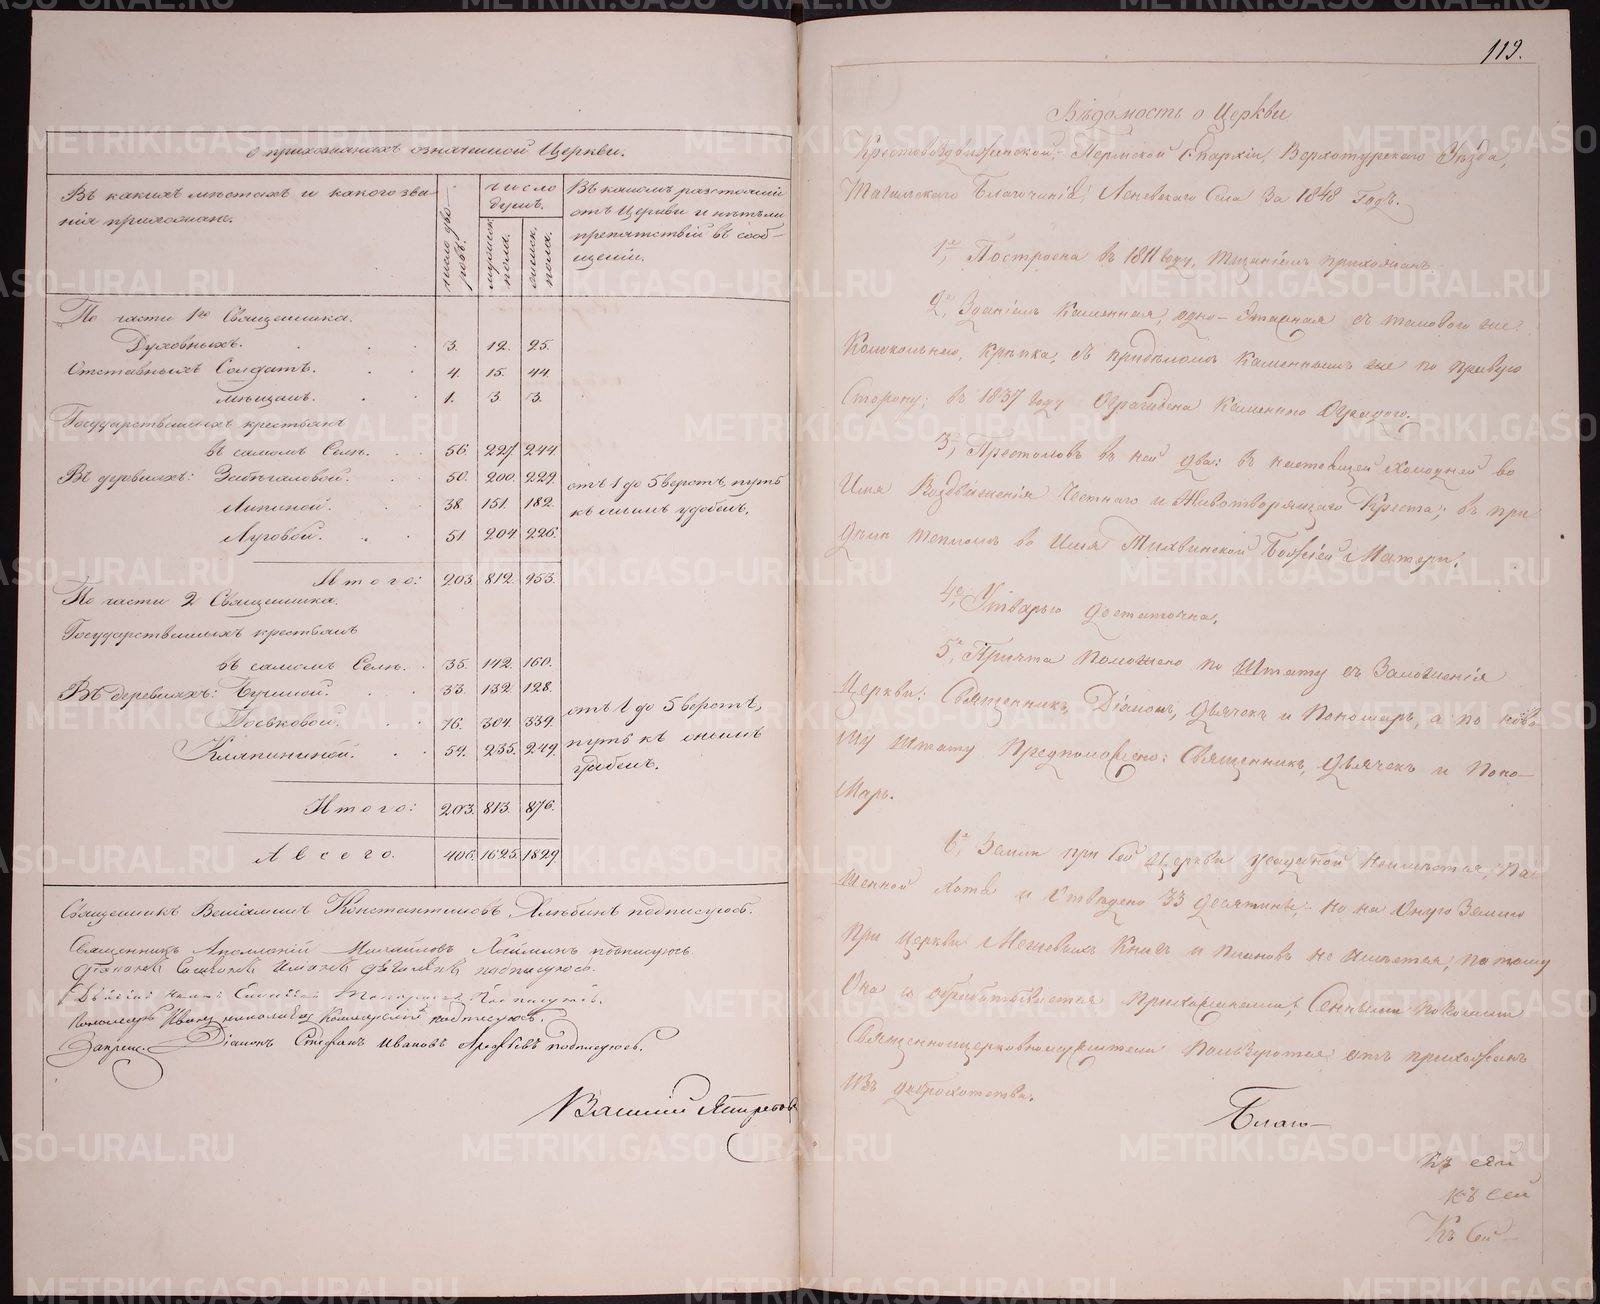 о прихожанахъ означенной Церкви.
Въ какихъ мѣстахъ и какого зва-
нія прихожане.
число дво-
ровъ.
число
душъ.
мужеск.
пола.
женск.
пола.
Въ какомъ разстояніи
отъ Церкви и нѣтъ ли
препятствій въ сооб-
щеніи.
По части 1го Священника.
Духовныхъ. 3. 12. 25.
Отставныхъ Солдатъ. 4. 15. 44.
мѣщанъ. 1. 3. 3.
Государственныхъ крестьянъ
въ самомъ Селѣ. 56. 227. 244.
Въ деревняхъ: Забѣгаловой. 50. 200. 229.
отъ 1 до 5 верстъ, путь
Липиной. 38. 151. 182.
къ онымъ удобенъ.
Луговой. 51. 204. 226.
Итого: 203. 812. 953.
По части 2 Священника.
Государственныхъ крестьянъ
въ самомъ Селѣ. 35. 142. 160.
Въ деревняхъ: Бучиной. 33. 132. 128.
отъ 1 до 5 верстъ,
76. 304. 339.
путь къ онымъ
Кляпининой. 59. 235. 249.
удобенъ.
Итого: 203. 813. 876.
А всего. 406. 1625. 1829.
Священникъ Веніаминъ Константиновъ подписуюсь.
Священникъ Аполлоній Михайловъ подписуюсь
подписуюсь.
Пономарь Иванъ подписуюсь.
Діаконъ Стефанъ Ивановъ подписуюсь.
Василій
119.
Вѣдомость о Церкви
Крестовоздвиженской, Пермской Епархіи, Верхотурскаго Уѣзда,
Тагильскаго Благочинія, Леневскаго Села за 1848 Годъ.
1е, Построена въ 1811 году, тщаніемъ прихожанъ.
2е, Зданіемъ Каменная, одно-этажная съ таковою же
Колокольнею, крѣпка, съ придѣломъ каменнымъ же по правую
Сторону; въ 1837 году Ограждена Каменною Оградою.
3е, Престоловъ въ ней два: въ настоящей холодной во
Имя Воздвиженія Честнаго и Животворящаго Креста; въ при-
дѣлѣ тепломъ во Имя Тихвинской Божіей Матери.
4е, Утварью достаточна.
5е, Причта положено по Штату съ Заложенія
Церкви: Священникъ, Діаконъ, Дьячекъ и Пономарь, а по ново-
му Штату Предположено: Священникъ, Дьячекъ и Поно-
марь.
6е, Земли при сей Церкви усадебной неимѣется, Па-
шенной хотя и отведено 33 десятины, но на оную Землю
при Церкви Межевыхъ Книгъ и плановъ не имѣется; потому
Она и обработывается прихожанами; Сѣнными покосами
Священноцерковнослужители пользуются отъ прихожанъ
изъ доброхотства.
Благо-
къ сей
къ сей
Къ сей
METRIKI.GASO-URAL.RU